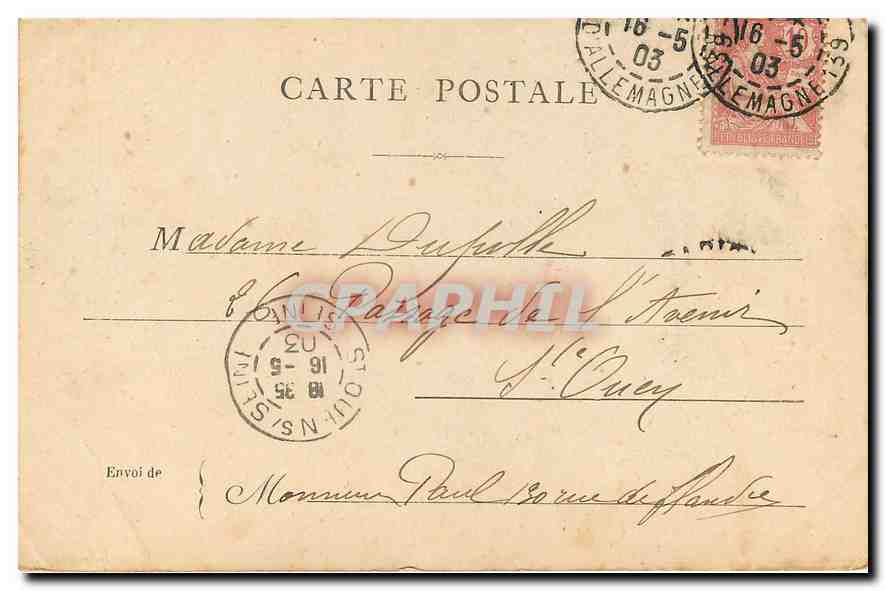 16 -5
03
D'ALLEMAGNE 139
16 -5
03
ALLEMAGNE 139
CARTE POSTALE
Madame
26 Passage de l'Avenir
St Ouen
CPARHIL
ST OUEN S/ SEINE
18 35
16 -5
03
Envoi de
Monsieur Paul 130 rue de flandre